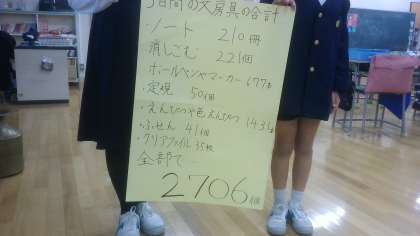 3日間の文房具の合計
・ノート 210冊
・消しごむ 221個
・ボールペンやマーカー 677本
・定規 50個
・えんぴつや色えんぴつ 1436本
・ふせん 41個
・クリアファイル 35枚
全部で…
2706個